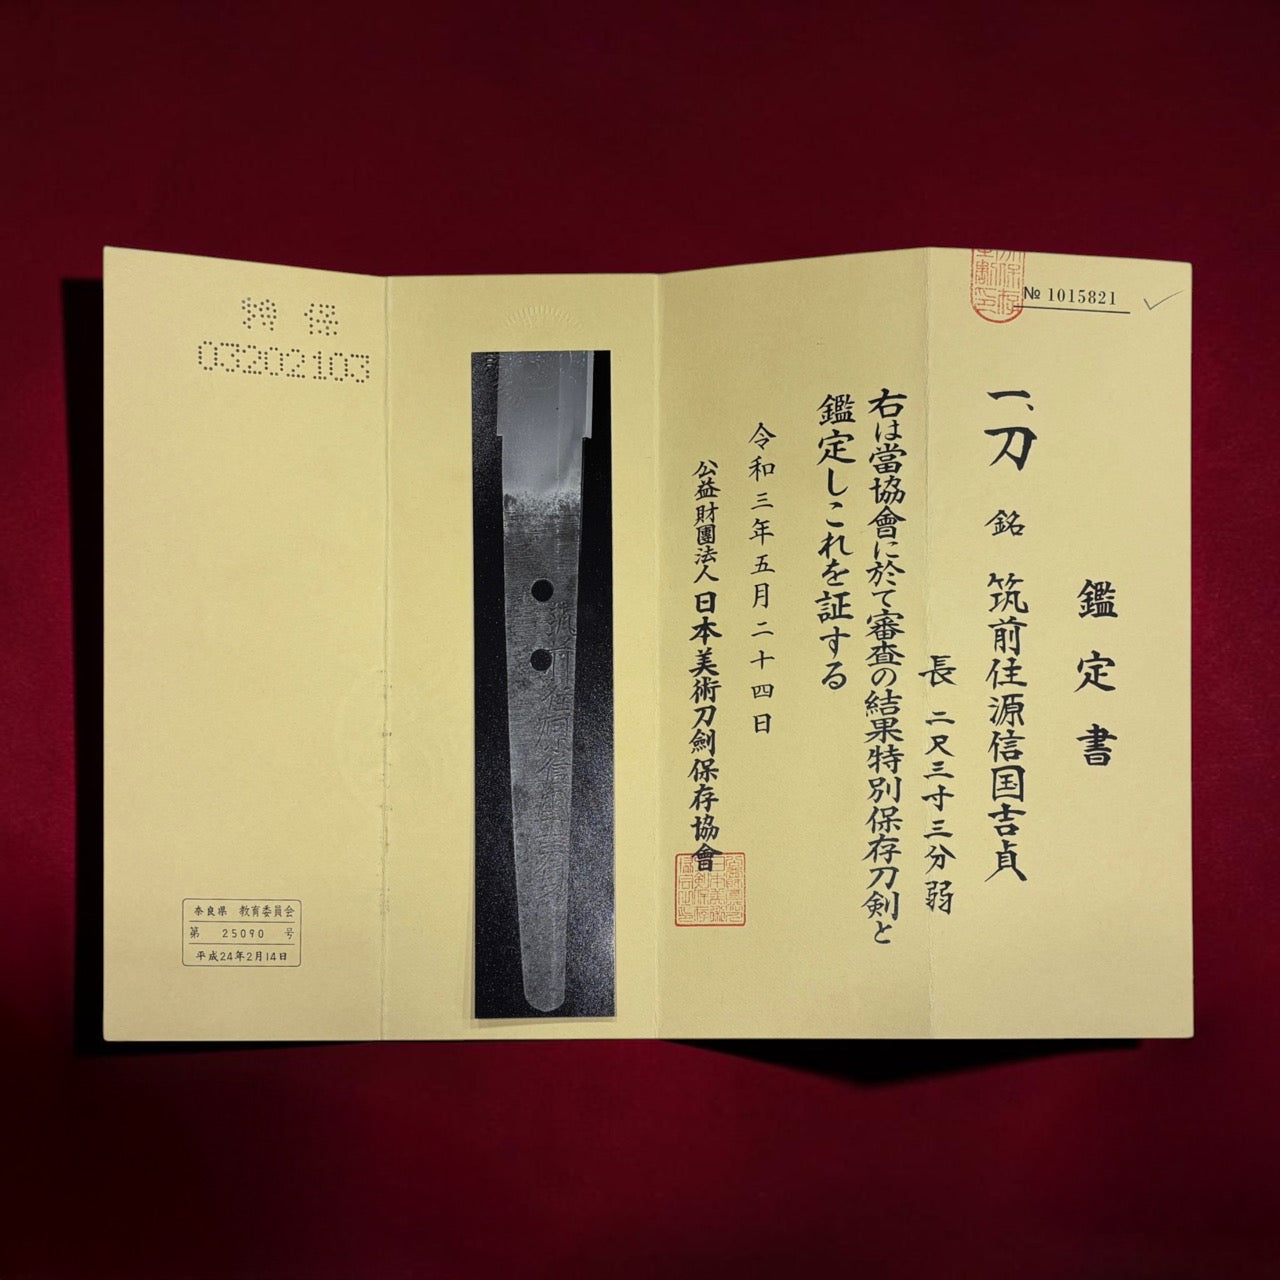 № 1015821
鑑定書
一、刀 銘 筑前住源信国吉貞
長 二尺三寸三分弱
右は當協會に於て審査の結果特別保存刀剣と
鑑定しこれを証する
令和三年五月二十四日
公益財團法人 日本美術刀劍保存協會
特保
03202103
奈良県 教育委員会
第 25090 号
平成24年2月14日